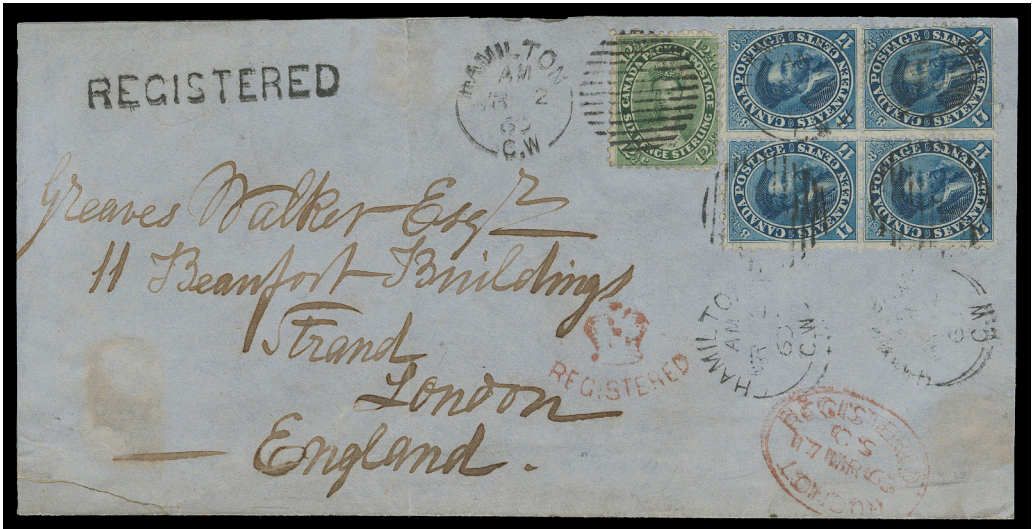 REGISTERED
HAMILTON
AM
MR 2
65
C.W
CANADA PACKET POSTAGE
12½
CANADA POSTAGE
SEVENTEEN CENTS
17
8
CANADA POSTAGE
SEVENTEEN CENTS
17
8
CANADA POSTAGE
SEVENTEEN CENTS
17
8
CANADA POSTAGE
SEVENTEEN CENTS
17
8
Greaves Walker Esqr
11 Beaufort Buildings
Strand
London
England.
REGISTERED
HAMILTON
AM
MR
C.W
C.W
REGISTERED